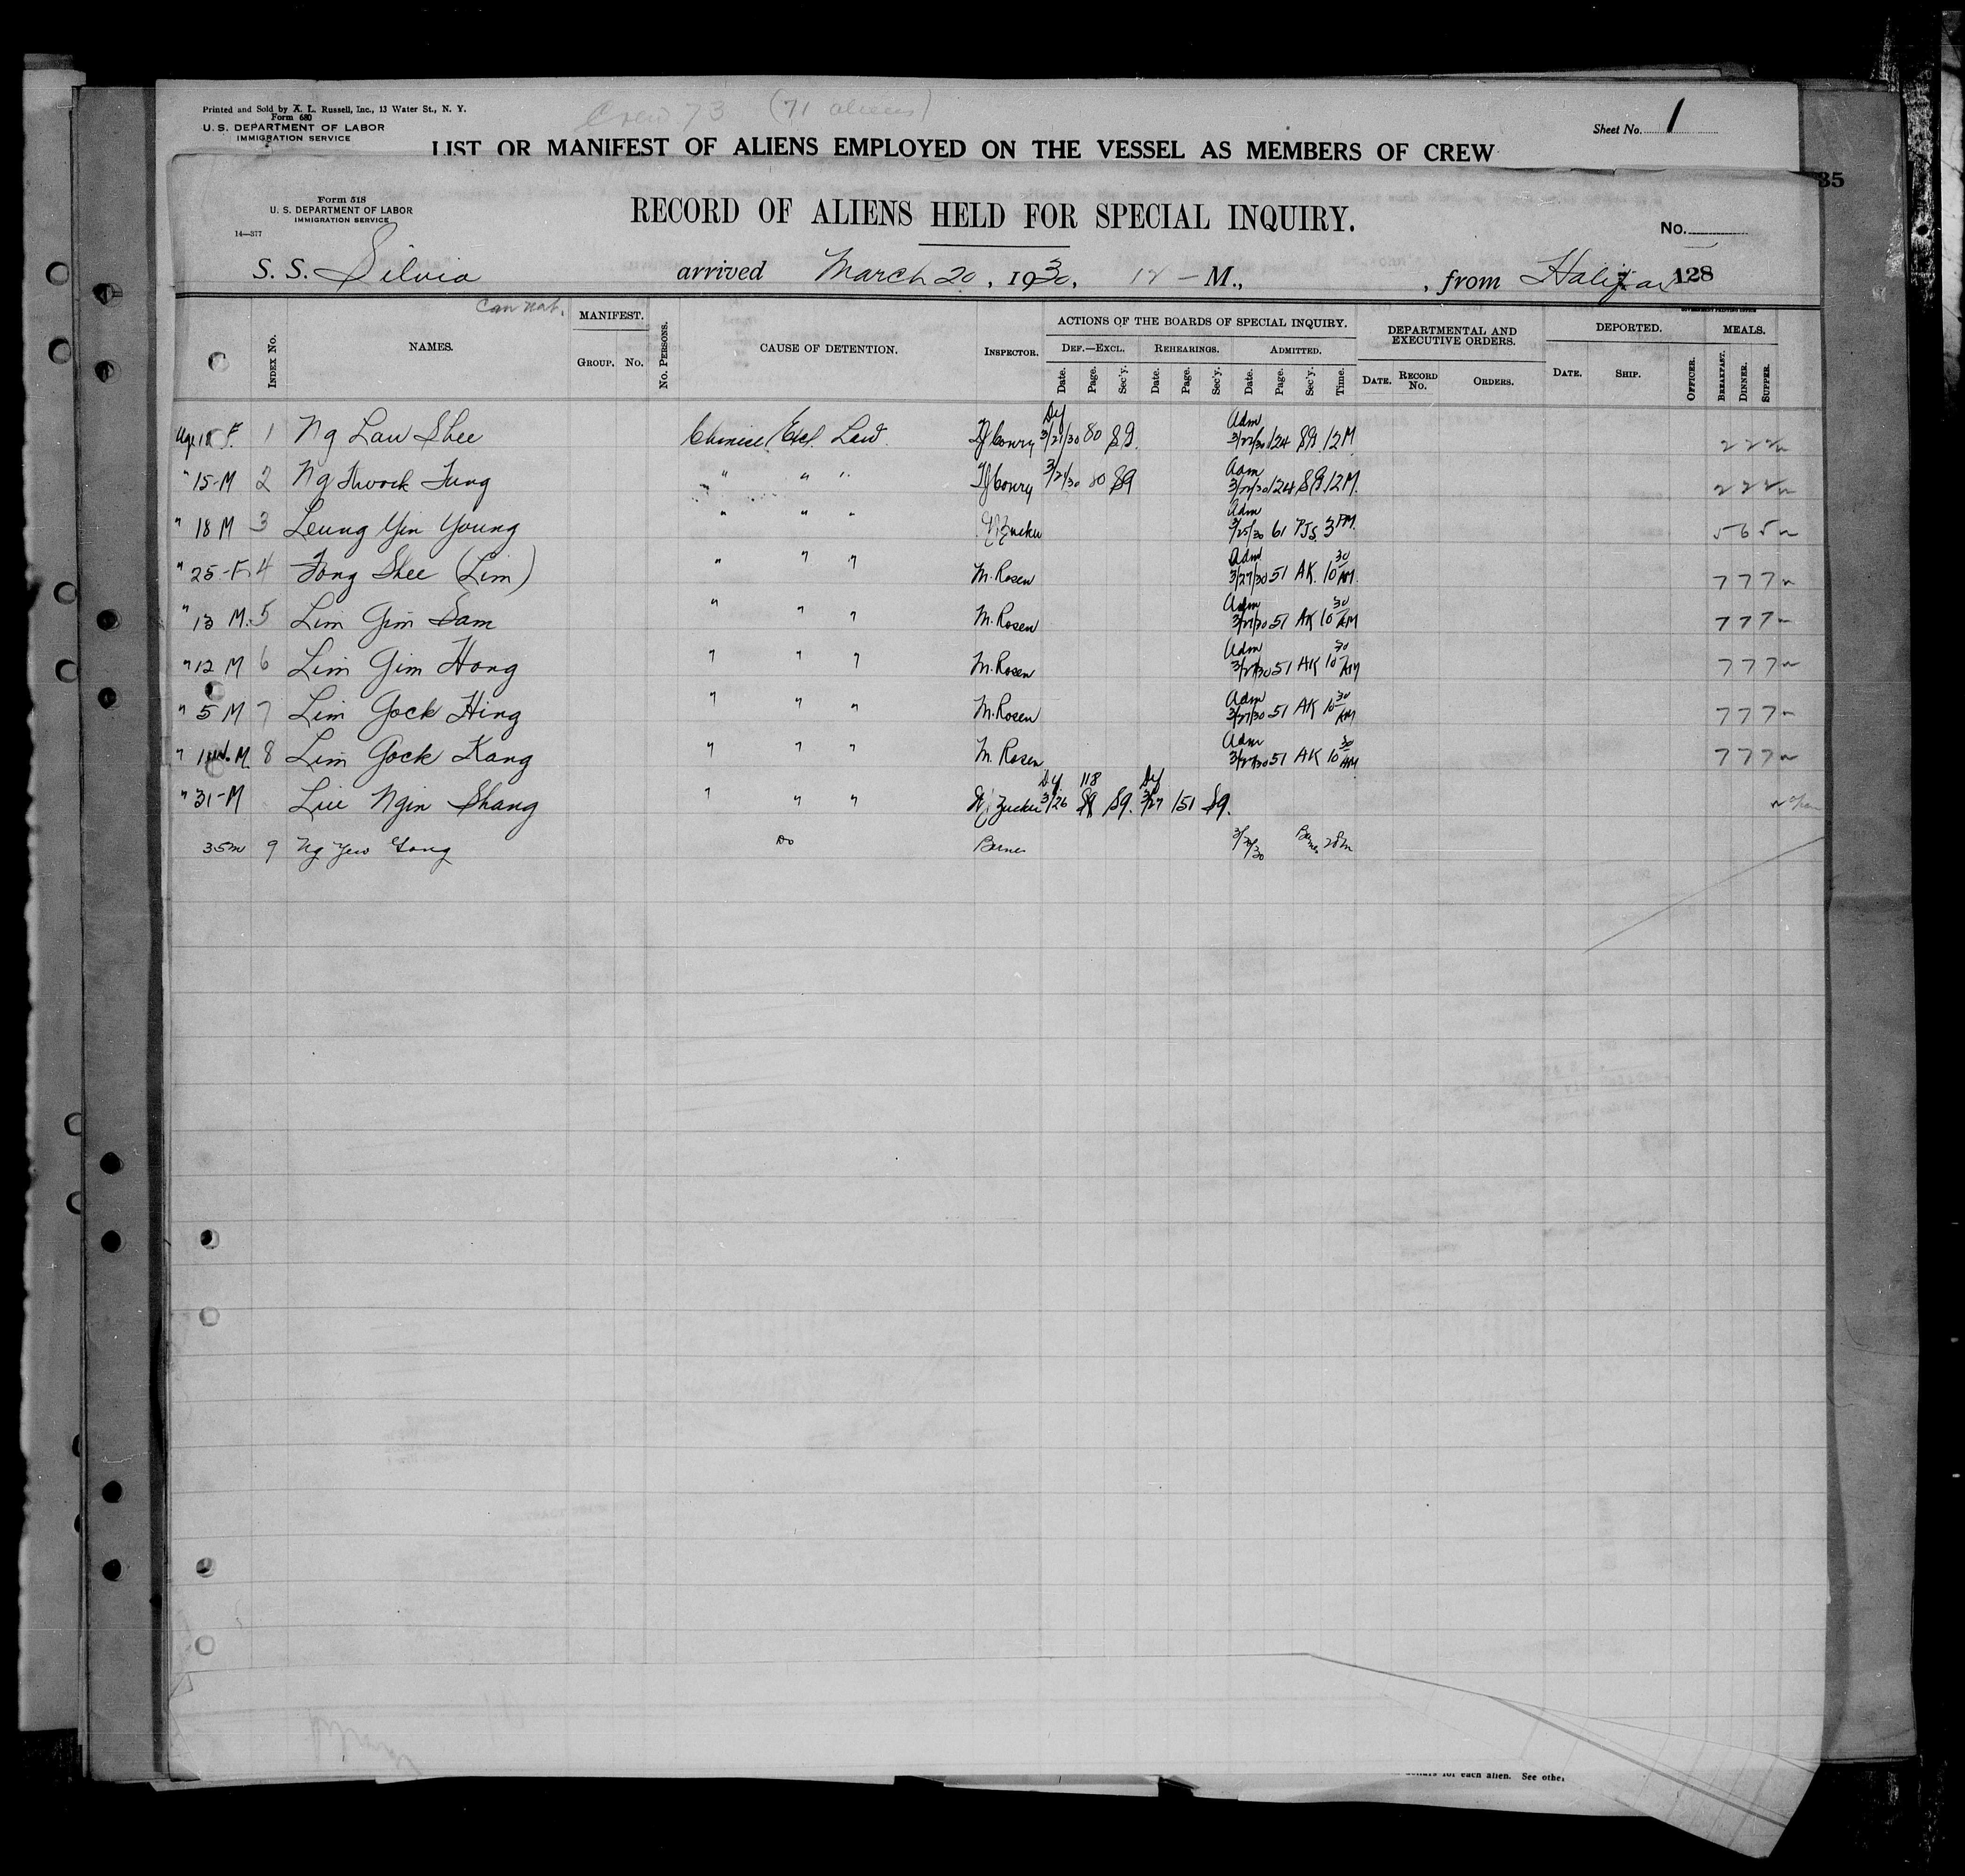 Printed and Sold by A. L. Russell, Inc., 13 Water St., N. Y.
Form 680
U. S. DEPARTMENT OF LABOR
IMMIGRATION SERVICE
Crew 73 (71 aliens)
Sheet No. 1
LIST OR MANIFEST OF ALIENS EMPLOYED ON THE VESSEL AS MEMBERS OF CREW
35
Form 518
U. S. DEPARTMENT OF LABOR
IMMIGRATION SERVICE
14—377
RECORD OF ALIENS HELD FOR SPECIAL INQUIRY.
No.
S. S. Silvia arrived March 20, 1930, 12 — M., , from Halifax 128
GOVERNMENT PRINTING OFFICE
INDEX No. NAMES. MANIFEST. GROUP. No. No. PERSONS. CAUSE OF DETENTION. INSPECTOR. ACTIONS OF THE BOARDS OF SPECIAL INQUIRY. DEPARTMENTAL AND EXECUTIVE ORDERS. DEPORTED. MEALS.
DEF.—EXCL. REHEARINGS. ADMITTED.
Date. Page. Sec'y. Date. Page. Sec'y. Date. Page. Sec'y. Time. DATE. RECORD No. ORDERS. DATE. SHIP. OFFICER. BREAKFAST. DINNER. SUPPER.
Age 18 F. 1 Ng Lau Shee Chinese Excl. Law Conry 3/21/30 80 Adm 3/22/30 124 12 M 2 2 2
" 15-M 2 Ng Kwock Fung " " " Conry 3/21/30 80 Adm 3/22/30 124 12 M. 2 2 2
" 18 M 3 Leung Yin Young " " " Zucker Adm 3/25/30 61 PJS 3 PM. 5 6 5
" 25-F 4 Fong Shee (Lim) " " " M. Rosen Adm 3/27/30 51 AK 10 30 AM. 7 7 7
" 13 M. 5 Lim Gim Sam " " " M. Rosen Adm 3/27/30 51 AK 10 30 AM 7 7 7
" 12 M 6 Lim Gim Hong " " " M. Rosen Adm 3/27/30 51 AK 10 30 AM 7 7 7
" 5 M 7 Lim Gock Hing " " " M. Rosen Adm 3/27/30 51 AK 10 30 AM 7 7 7
" M. 8 Lim Gock Kang " " " M. Rosen Adm 3/27/30 51 AK 10 30 AM 7 7 7
" 31-M Lui Ngin Shang " " " Zucker 3/26 118 3/27 151
35 m 9 Ng Yew Gong Do Barnes
dollars for each alien. See other